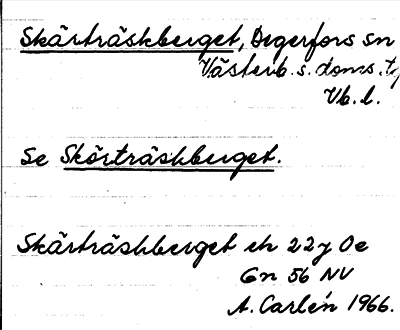 Skärträskberget, Degerfors sn
Västerb. s. doms.
Vb. l.
Se Skörträskberget.
Skärträskberget ek 22 J 0e
Gn 56 NV
A. Carlén 1966.